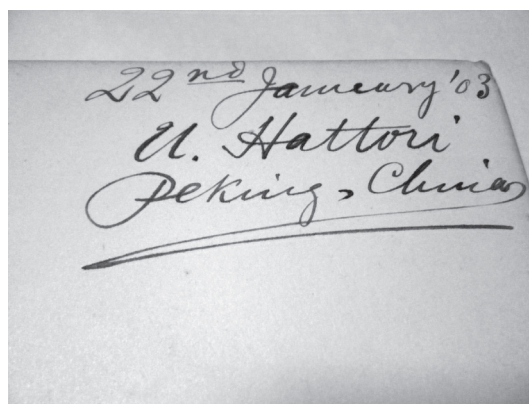 22nd January '03
U. Hattori
Peking, China